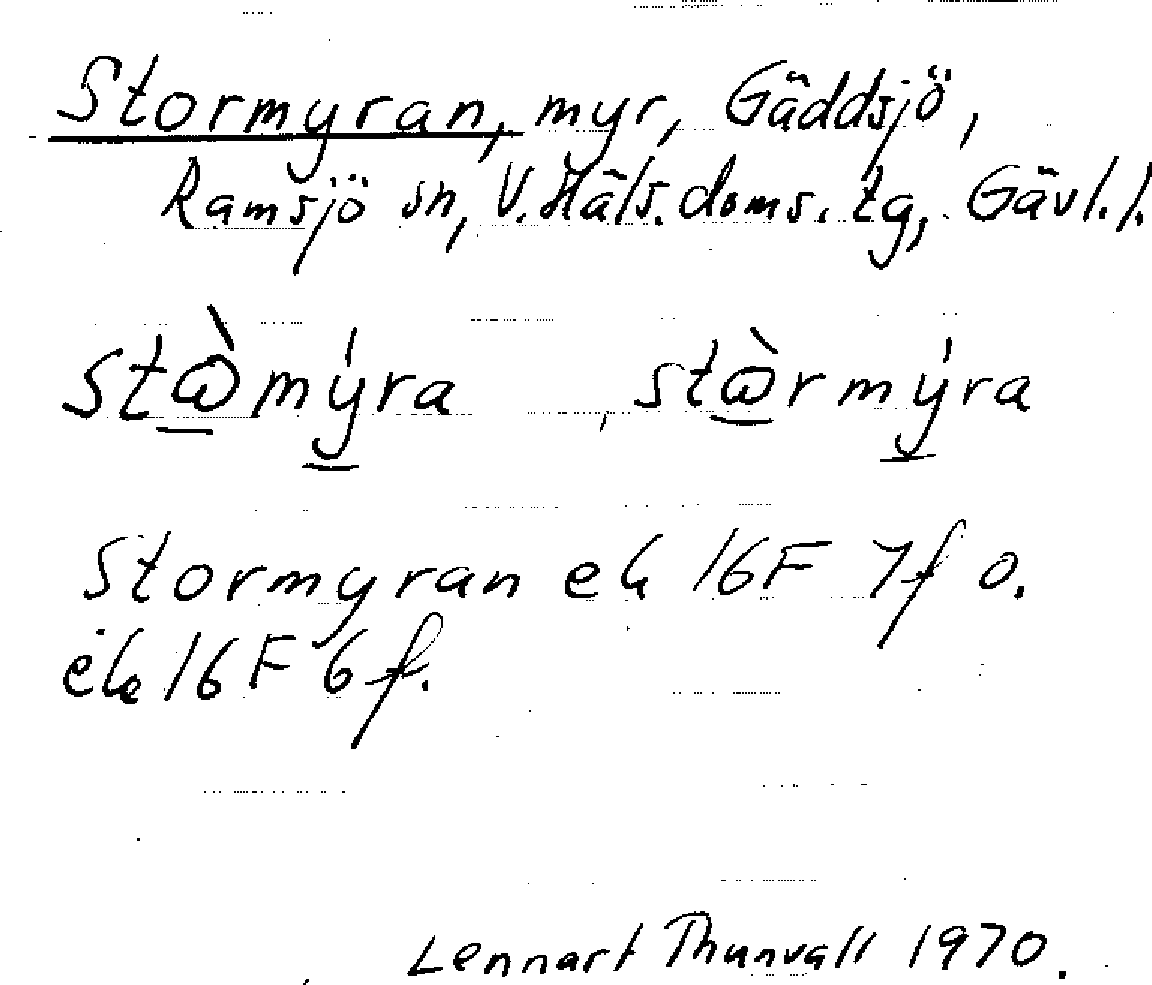 Stormyran, myr, Gäddsjö,
Ramsjö sn, V. Häls. doms. tg, Gävl. l.
stà̱mý̱ra, stà̱rmý̱ra
Stormyran ek 16F 7f o.
ek 16F 6f.
Lennart Thunvall 1970.